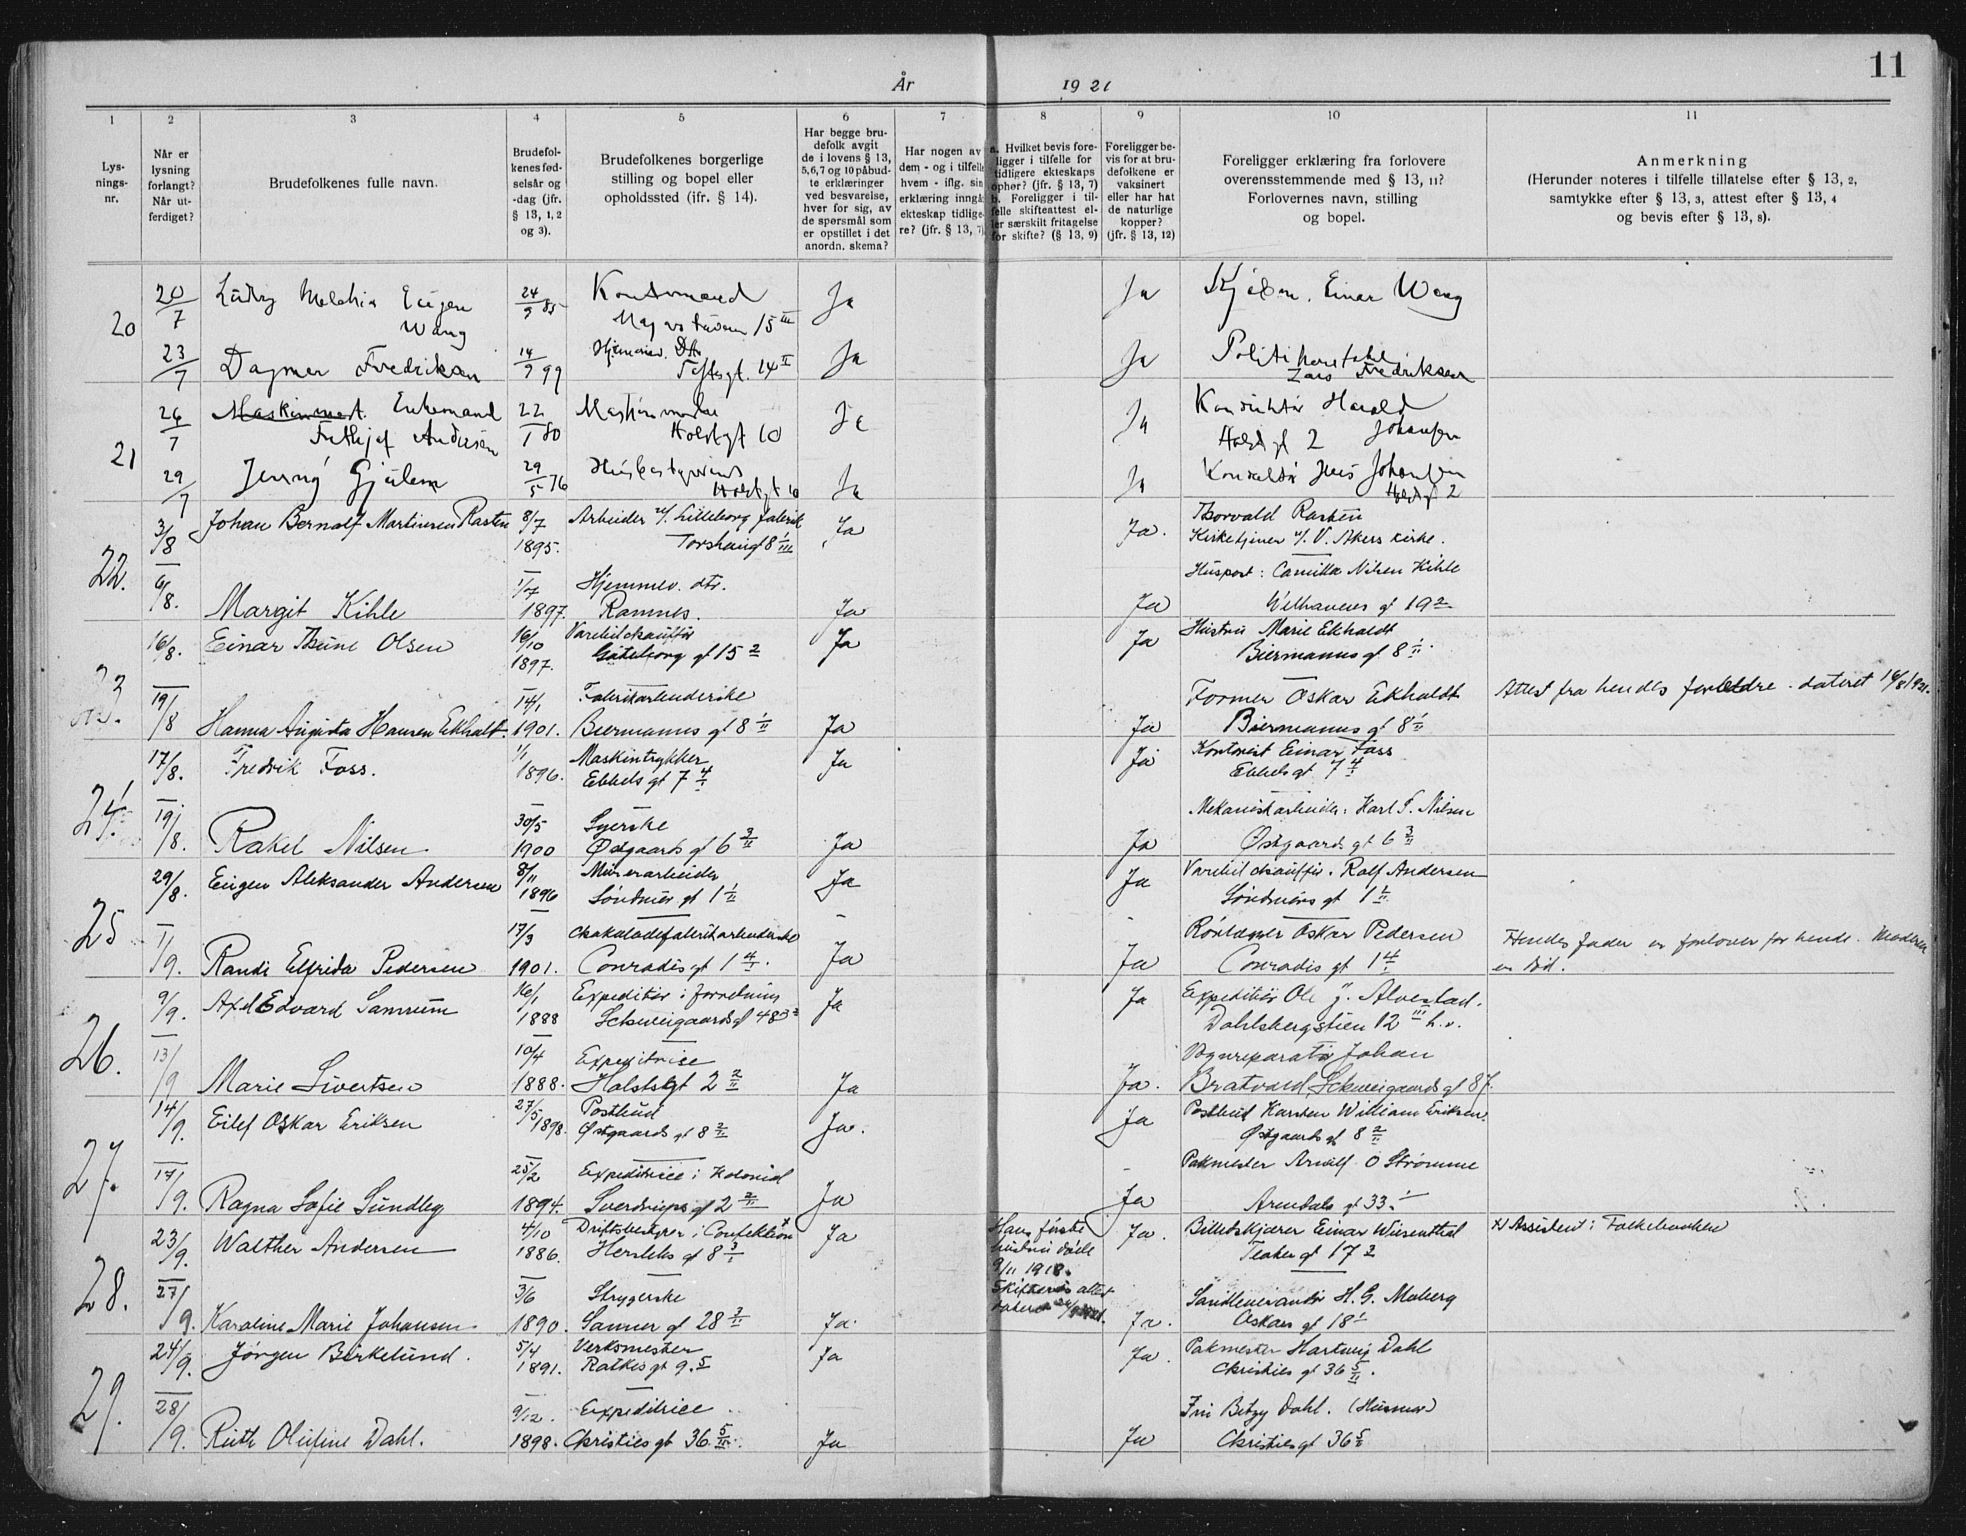 11
År 1921
1 2 3 4 5 6 7 8 9 10 11
Lysningsnr.
Når er lysning forlangt? Når utferdiget?
Brudefolkenes fulle navn.
Brudefolkenes fødselsår og -dag (jfr. § 13, 1, 2 og 3).
Brudefolkenes borgerlige stilling og bopel eller opholdssted (ifr. § 14).
Har begge brudefolk avgit de i lovens § 13, 5, 6, 7 og 10 påbudte erklæringer ved besvarelse, hver for sig, av de spørsmål som er opstillet i det anordn. skema?
Har nogen av dem - og i tilfelle hvem - iflg. sin erklæring inngå ekteskap tidligere? (jfr. § 13, 7)
a. Hvilket bevis foreligger i tilfelle for tidligere ekteskaps ophør? (jfr. § 13, 7) b. Foreligger i tilfelle skifteattest eller særskilt fritagelse for skifte? (§ 13, 9)
Foreligger bevis for at brudefolkene er vaksinert eller har hat de naturlige kopper? (jfr. § 13, 12)
Foreligger erklæring fra forlovere overensstemmende med § 13, 11? Forlovernes navn, stilling og bopel.
Anmerkning
(Herunder noteres i tilfelle tillatelse efter § 13, 2, samtykke efter § 13, 3, attest efter § 13, 4 og bevis efter § 13, 8).
20
20/7 Eugen Wang 24/9 85 15 III Ja Ja Einar Wang
23/7 Dagmar Fredriksen 14/9 99 Toftesgt. 14 II Ja Ja Politikonstabel Lars Fredriksen
21
26/7 Enkemand Andersen 22/1 80 Holstgt 10 Ja Ja Konduktør Harald Johansen Holstgt 2
29/7 Jenny Gjulem 29/5 76 Husbestyrerinde Holstgt 10 Ja Ja Konduktør Johansen Holstgt 2
22.
3/8 Johan Bernolf Martinsen Rasten 8/7 1895. Arbeider v/. Lilleborg fabrik Torshaugt 8 I/III Ja Ja. Thorvald Rasten Kirketjener v/. V. Akers kirke.
6/8. Margit Kihle 1/7 1897. Hjemmev. dtr. Ramnes. Ja Ja Huspost: Camilla Nilsen Kihle Welhavens gt 19 2
23.
16/8. Einar Thune Olsen 16/10 1897. Varebilchauffør Gøteborg gt 15 2 Ja Ja Hustru Marie Ekholdt Biermanns gt 8 I/II
19/8 Hanna Augusta Hansen Ekholt. 14/1 1901. Fabrikarbeiderske Biermanns gt 8 I/II Ja Ja Former Oskar Ekholdt Biermanns gt 8 I/II Attest fra hendes foreldre. dateret 16/8 1921.
24.
17/8. Fredrik Foss. 1/1 1896. Maskintrykker Ebbels gt 7 4/I Ja Ja Kontorist Einar Foss Ebbels gt 7 4/I
19/8. Rakel Nilsen 30/5 1900 Syerske Østgaards gt 6 3/II Ja Ja Mekanisk arbeider: Karl F. Nilsen Østgaards gt 6 3/II
25
29/8. Eugen Aleksander Andersen 8/11 1896 Murerarbeider Søndmørs gt 1 I/II Ja Ja Varebilchauffør. Rolf Andersen Søndmørs gt 1 I/II
1/9. Randi Elfrida Pedersen 17/3 1901. Chokoladefabrikarbeiderske Conradis gt 1 4/I. Ja Ja Rørlægger Oskar Pedersen Conradis gt 1 4/I Hendes fader er forlover for hende. Moderen er død.
26.
9/9. Axel Edvard Samrum 16/1 1888 Expeditør i forretning Schweigaards gt 48 Ja Ja Expeditør Ole J. Alvestad. Dahlsbergstien 12 III h.v.
13/9 Marie Sivertsen 10/4 1888. Expeditrice Holstsgt 2 2/II Ja Ja. Vognreparatør Johan Bratvord, Schweigaards gt 87.
27.
14/9. Eilef Oskar Eriksen 27/5 1898. Postbud Østgaards gt 8 2/II Ja. Ja Postbud Karsten William Eriksen. Østgaards gt 8 2/II
17/9. Ragna Sofie Sundby 25/2 1894. Expeditrice i Kolonial Sverdrups gt 2 2/II Ja Ja Pakmester Arnulf O Strømme Arendals gt 33. I
28.
23/9. Walther Andersen 4/10 1886. Driftsbestyrer i Confektion x Herslebs gt 8 3/I Ja Hans første hustru døde 9/11 1918. Skifterets attest dateret Ja. Billedskjærer Einar Wiesenthal Teater gt 17 2 x) Assistent i Folkebanken
27/9. Karoline Marie Johansen 3/6 1890. Strygerske Sanner gt 28 3/II Ja. Ja. Sandleverandør H. G. Moberg Oskars gt 18 I
29.
24/9. Jørgen Birkelund. 5/4 1891. Verksmester Ratkes gt 9. 5 Ja Ja. Pakmester Hartvig Dahl Christies gt 36 5/II.
28/9. Ruth Olufine Dahl. 9/12. 1898. Expeditrice Christies gt 36 5/II. Ja Ja Fru Betzy Dahl. (Husmor) Christies gt 36 5/II